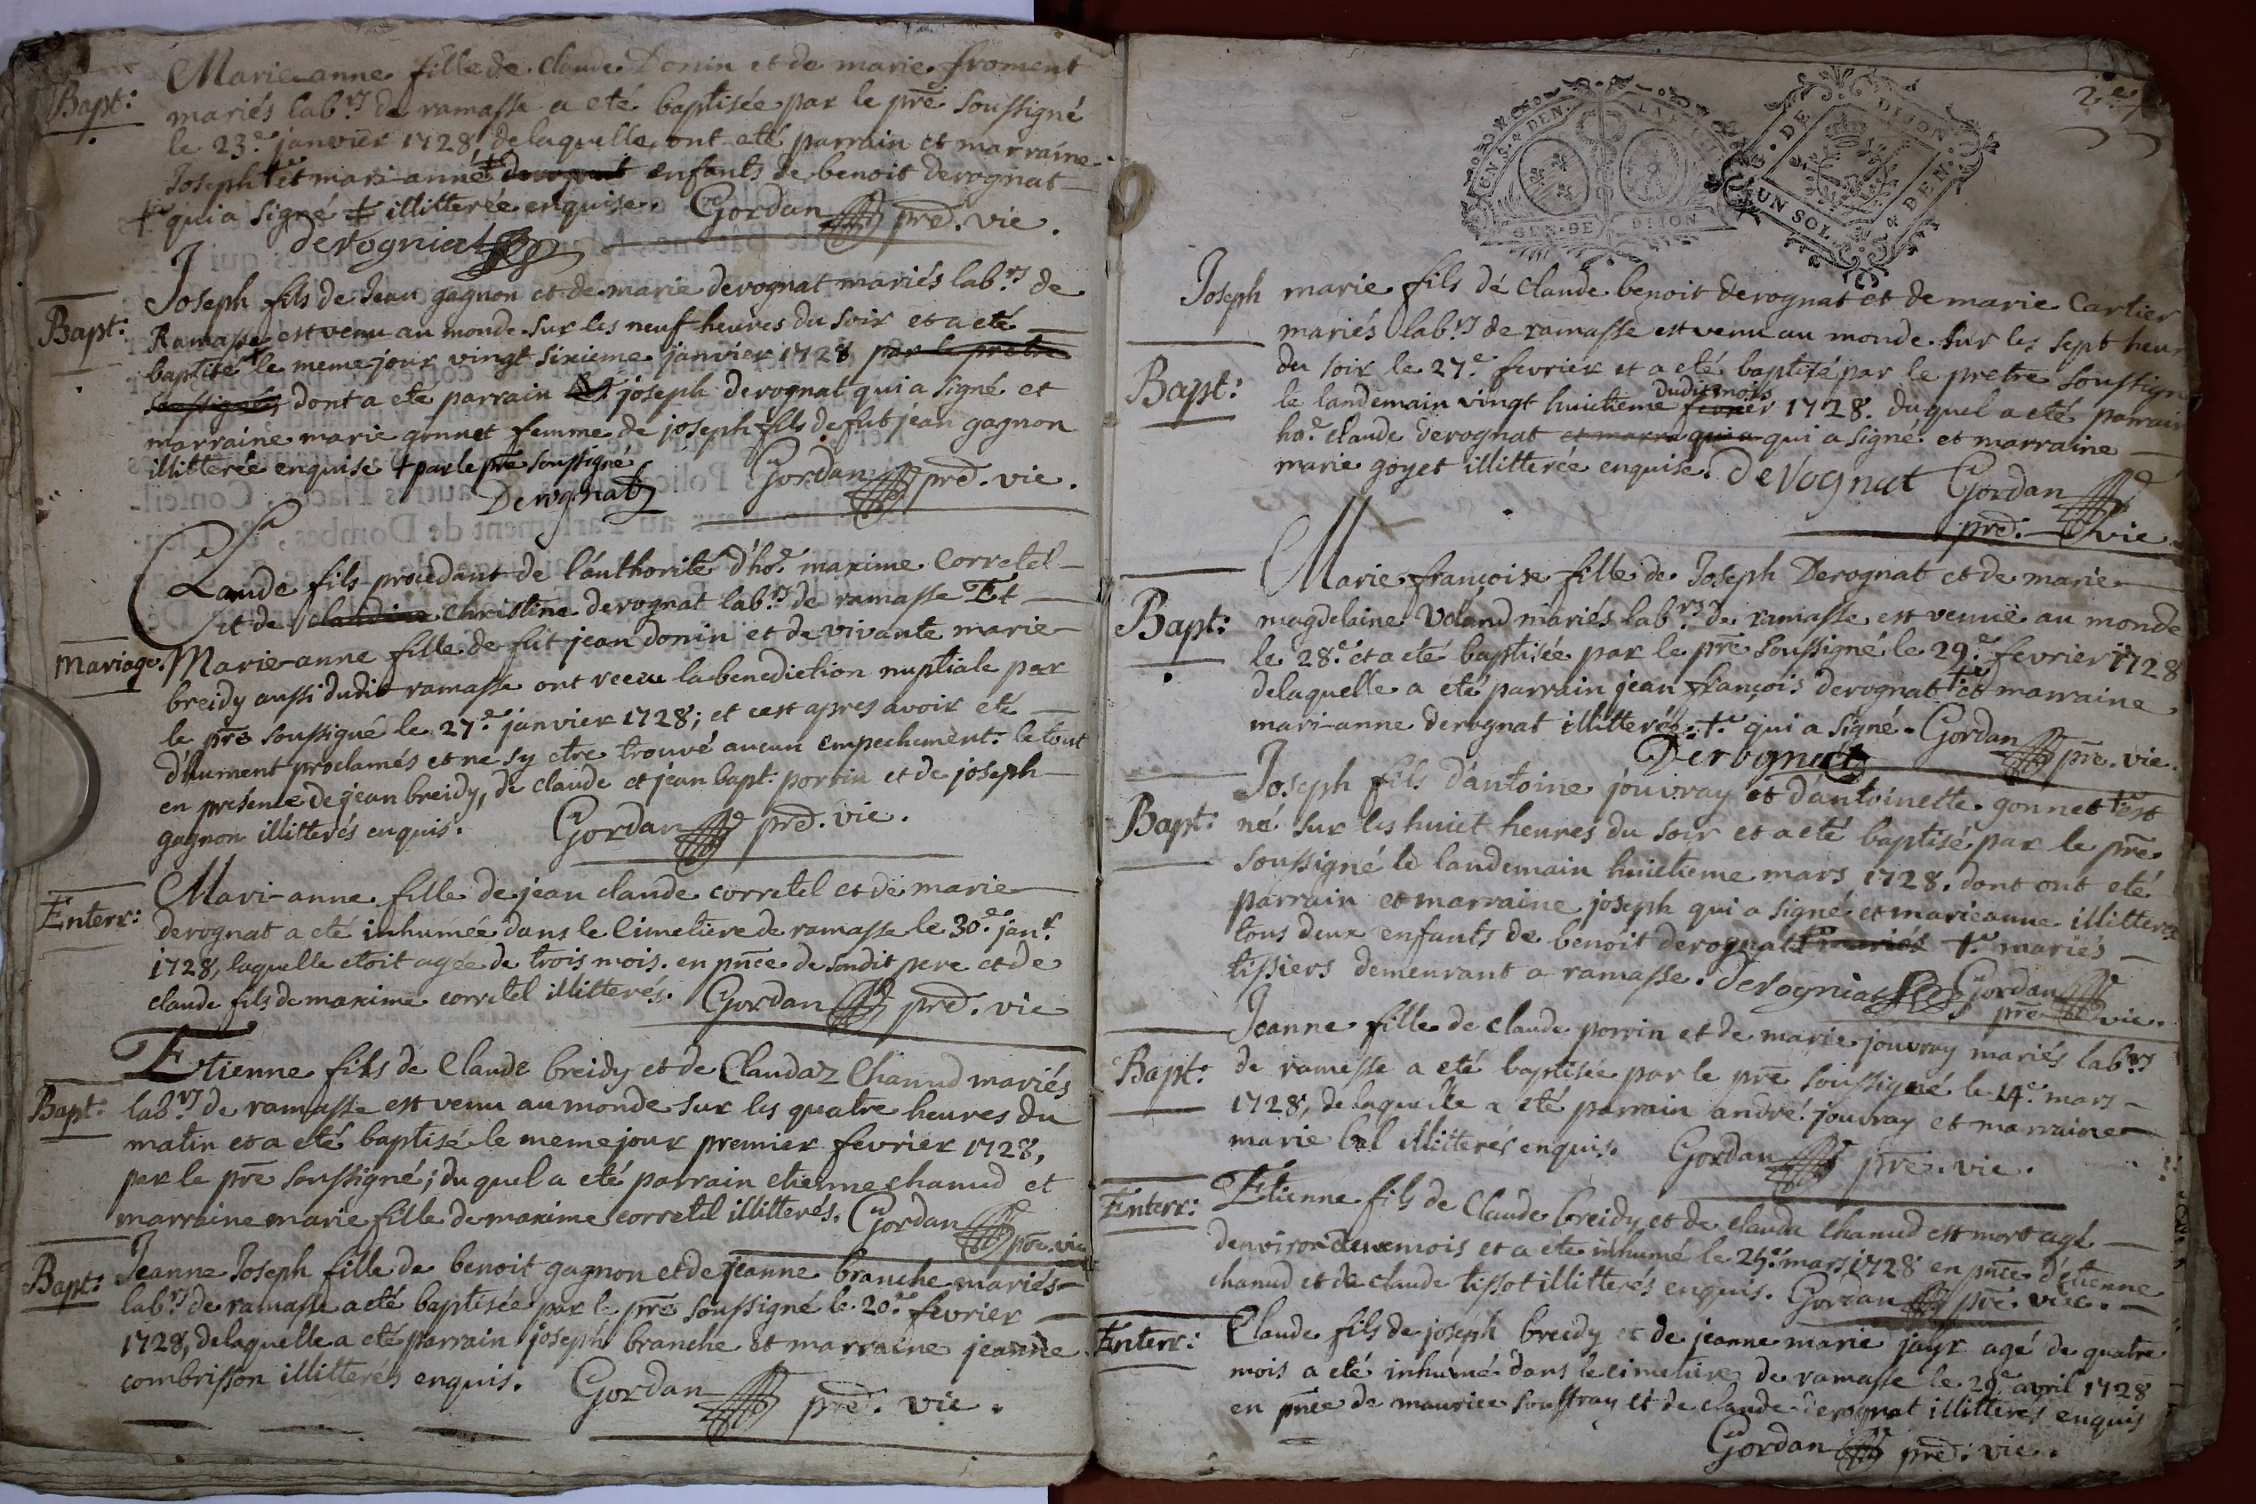 Bapt:
Marie-anne fille de Claude Donin et de marie froment
mariés lab.rs de ramasse a eté baptisée par le pre soussigné
le 23.e janvier 1728, de laquelle ont eté parrain et marraine
Joseph + et mari-anne derognat enfants de benoit derognat
+ qui a signé + illitterée enquise. Gordan pre. vic.
derogniat
Bapt:
Joseph fils de Jean gagnon et de marie derognat mariés lab.rs de
Ramasse est venu au monde sur les neuf heures du soir et a eté
baptisé le meme jour vingt sixieme janvier 1728 par le pretre
soussigné dont a eté parrain joseph derognat qui a signé et
marraine marie gonnet femme de joseph fils de fut jean gagnon
illitterée enquise + par le pre soussigné
Derognat Gordan pre. vic.
Claude fils procedant de l'authorité d'ho.e maxime Corretel
et de claudine Christine derognat lab.rs de ramasse Et
Mariage.
Marie-anne fille de fut jean donin et de vivante marie
breidy aussi dudit ramasse ont receu la benediction nuptiale par
le pre soussigné le 27.e janvier 1728; et cest apres avoir eté
dhument proclamés et ne sy etre trouvé aucun empechement. le tout
en presence de jean breidy, de claude et jean bapt. porrin et de joseph
gagnon illitterés enquis. Gordan pre. vic.
Enterr:
Mari-anne fille de jean claude corretel et de marie
derognat a eté inhumée dans le Cimetiere de ramasse le 30.e jan.r
1728, laquelle etoit agée de trois mois. en pnce de sondit pere et de
claude fils de maxime corretel illitterés. Gordan pre. vic
Bapt:
Etienne fils de Claude breidy et de Claudaz Chanud mariés
lab.rs de ramasse est venu au monde sur les quatre heures du
matin et a eté baptisé le meme jour premier fevrier 1728,
par le pre soussigné; du quel a eté parrain etienne chanud et
marraine marie fille de maxime corretel illitterés. Gordan pre. vic
Bapt:
Jeanne Joseph fille de benoit gagnon et de jeanne branche mariés
lab.rs de ramasse a eté baptisée par le pre soussigné le 20.e fevrier
1728, de laquelle a eté parrain joseph branche et marraine jeanne
combrisson illitterés enquis. Gordan pre. vic.
2.e
GEN. DE DIJON
G. DE DIJON & DEN.
UN SOL
Joseph marie fils de Claude benoit derognat et de marie Cartier
mariés lab.rs de ramasse est venu au monde sur les sept heur
Bapt:
du soir le 27.e fevrier et a eté baptisé par le pretre soussign
dudit mois
le landemain vingt huictieme fevrier 1728. duquel a eté parrain
ho.e claude derognat et marra qui a qui a signé et marraine
marie goyet illitterée enquise. deVognat Gordan
pre. vic
Bapt:
Marie françoise fille de Joseph Derognat et de marie
magdelaine Voland mariés lab.rs de ramasse est venuë au monde
le 28.e et a eté baptisée par le pre soussigné le 29.e fevrier 1728
de laquelle a eté parrain jean françois derognat + et marraine
mari-anne derognat illitterée. + qui a signé. Gordan pre. vic.
Derognat
Bapt:
Joseph fils d'antoine jouvray et d'antoinette gonnet + est
né sur les huict heures du soir et a eté baptisé par le pre
soussigné le landemain huictieme mars 1728. dont ont eté
parrain et marraine joseph qui a signé et marie anne illitterée
tous deux enfants de benoit derognat mariés + mariés
tissiers demeurant a ramasse. derogniat Gordan
pre vic.
Bapt:
Jeanne fille de claude porrin et de marie jouvray mariés lab.rs
de ramasse a eté baptisée par le pre soussigné le 14.e mars
1728, de laquelle a eté parrain andré jouvray et marraine
marie bal illitterés enquis. Gordan pre. vic.
Enterr:
Etienne fils de Claude breidy et de clauda Chanud est mort agé
denviron deux mois et a eté inhumé le 25.e mars 1728 en pnce d'etienne
chanud et de claude tissot illitterés enquis. Gordan pre. vic.
Enterr:
Claude fils de joseph breidy et de jeanne marie jayr agé de quatre
mois a eté inhumé dans le cimetiere de ramasse le 29.e avril 1728
en pnce de maurice souffray et de claude derognat illitterés enquis
Gordan pre. vic.